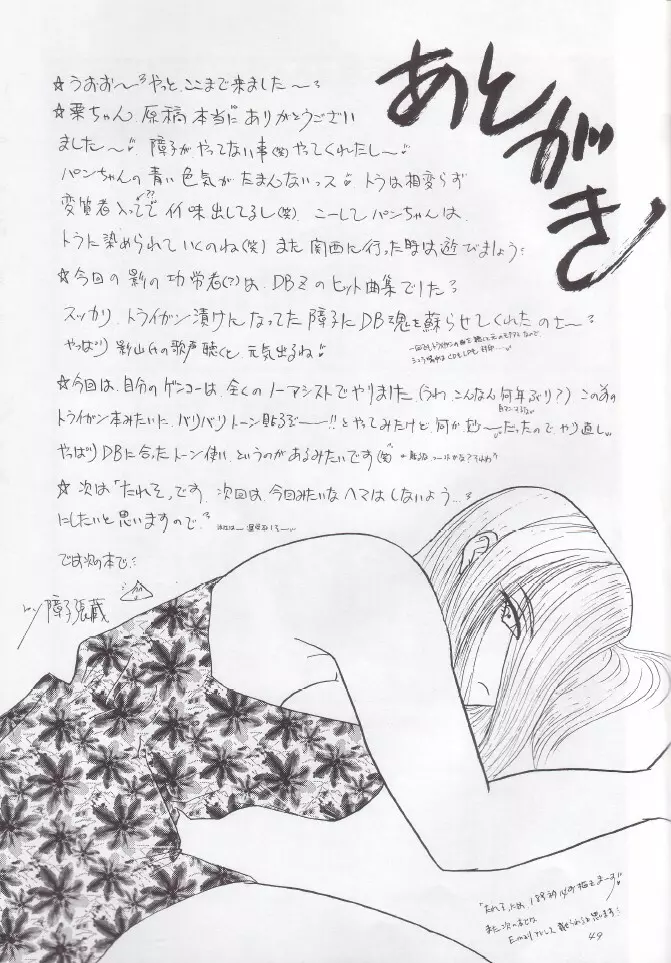 あとがき
☆うおお〜やっと、ここまで来ました〜
☆栗ちゃん、原稿本当にありがとうござい
ました〜 障子がやってない事(笑)やってくれたし〜
パンちゃんの青い色気がたまんないっス トラは相変らず
変質者入っててイイ味出してるし(笑) こーしてパンちゃんは、
トラに染められていくのね(笑) また関西に行った時は遊びましょう
☆今回の影の功労者(?)は、DBZのヒット曲集でした
スッカリ、トライガン漬けになってた障子にDB魂を蘇らせてくれたのさ〜
やっぱり影山氏の歌声聴くと、元気出るね
☆今回は、自分のゲンコーは、全くのノーアシストでやりました(うわ、こんなん何年ぶり?)この前の
トライガン本みたいに、バリバリトーン貼るぞーー!!とやってみたけど何か妙〜だったので、やり直し
やっぱりDBに合ったトーン使い、というのがあるみたいです(笑)
☆次は「たれそ」です、次回は、今回みたいなヘマはしないよう…
にしたいと思いますので
では次の本で
障子張蔵
また次の本では
Emailアドレス載せられると思います
49